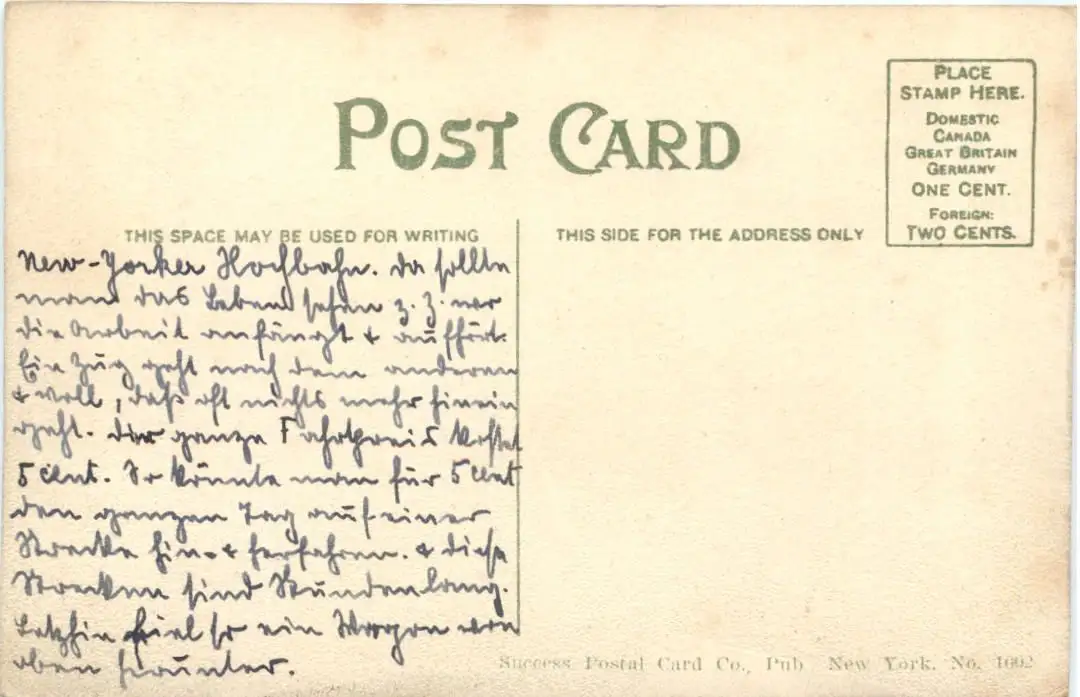 POST CARD
PLACE
STAMP HERE.
DOMESTIC
CANADA
GREAT BRITAIN
GERMANY
ONE CENT.
FOREIGN:
TWO CENTS.
THIS SPACE MAY BE USED FOR WRITING
THIS SIDE FOR THE ADDRESS ONLY
New-Yorker Hochbahn. Da sollte
man das Leben sehen z. Z. wo
die Arbeit anfängt & aufhört.
Ein Zug geht nach dem anderen
& voll, daß oft nichts mehr hinein
geht. Der ganze Fahrtpreis kostet
5 Cent. So könnte man für 5 Cent
den ganzen Tag auf einer
Strecke hin- & herfahren. & diese
Strecken sind Stundenlang.
Letzhin fiel so ein Waggon von
oben herunter.
Success Postal Card Co., Pub New York. No. 1002